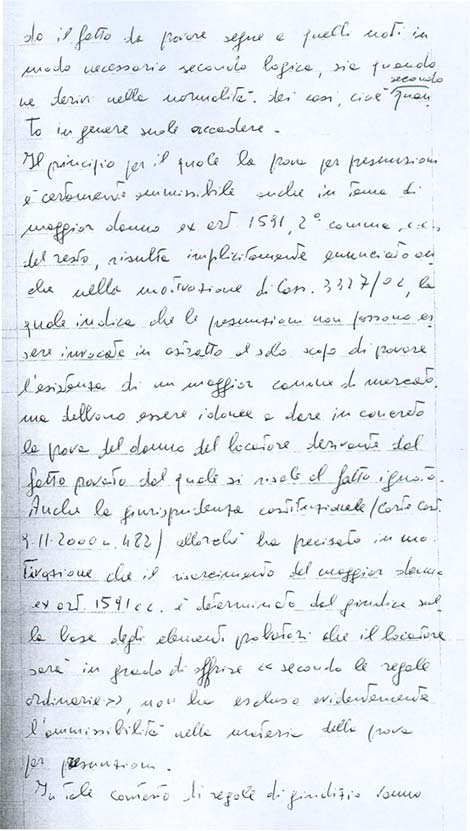 do il fatto da provare segue a quelli noti in
modo necessario secondo logica, sia quando
ne derivi nella normalità dei casi, cioè secondo quan
to in genere suole accadere.
Il principio per il quale la prova per presunzioni
è certamente ammissibile anche in tema di
maggior danno ex art 1591, 2° comma, c.c.
del resto, risulta implicitamente enunciato an
che nella motivazione di Cass. 3327/02, la
quale indica che le presunzioni non possono es
sere invocate in astratto al solo scopo di provare
l'esistenza di un maggior canone di mercato,
ma debbono essere idonee a dare in concreto
la prova del danno del locatore derivante dal
fatto provato dal quale si risale al fatto ignoto.
Anche la giurisprudenza costituzionale (Corte Cost.
9.11.2000 n. 482) allorché ha precisato in mo
tivazione che il risarcimento del maggior danno
ex art. 1591 c.c. è determinato dal giudice sul
la base degli elementi probatori che il locatore
sarà in grado di offrire << secondo le regole
ordinarie >>, non ha escluso evidentemente
l'ammissibilità nella materia della prova
per presunzioni.
In tale contesto di regole di giudizio vanno